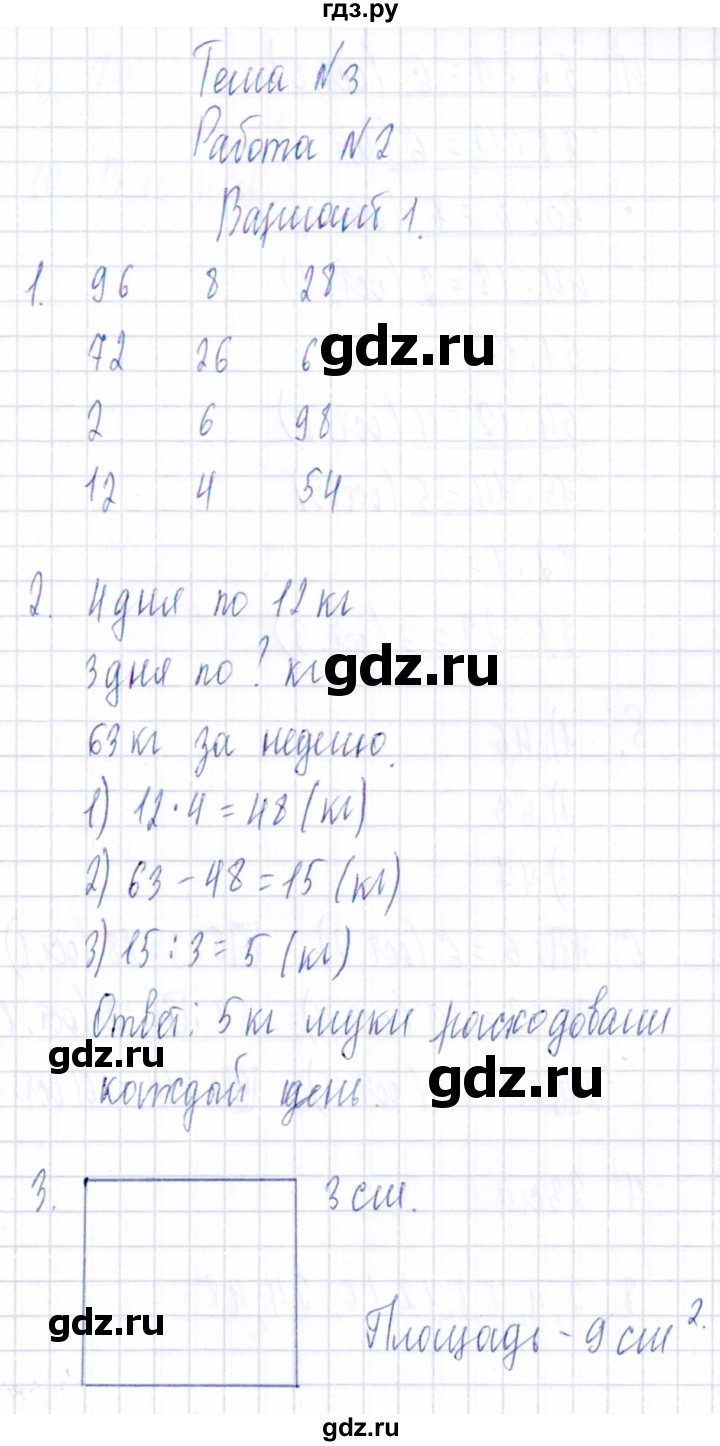 гдз.ру
Тема №3
Работа №2
Вариант 1.
1. 96 8 28
72 26 6
gdz.ru
2 6 98
12 4 54
2. 4 дня по 12 кг
3 дня по ? кг
gdz.ru
63 кг за неделю.
1) 12·4=48 (кг)
2) 63-48=15 (кг)
3) 15:3=5 (кг)
Ответ: 5 кг муки расходовали
gdz.ru
каждый день.
gdz.ru
3. 3 см.
gdz.ru
Площадь - 9 см².
gdz.ru